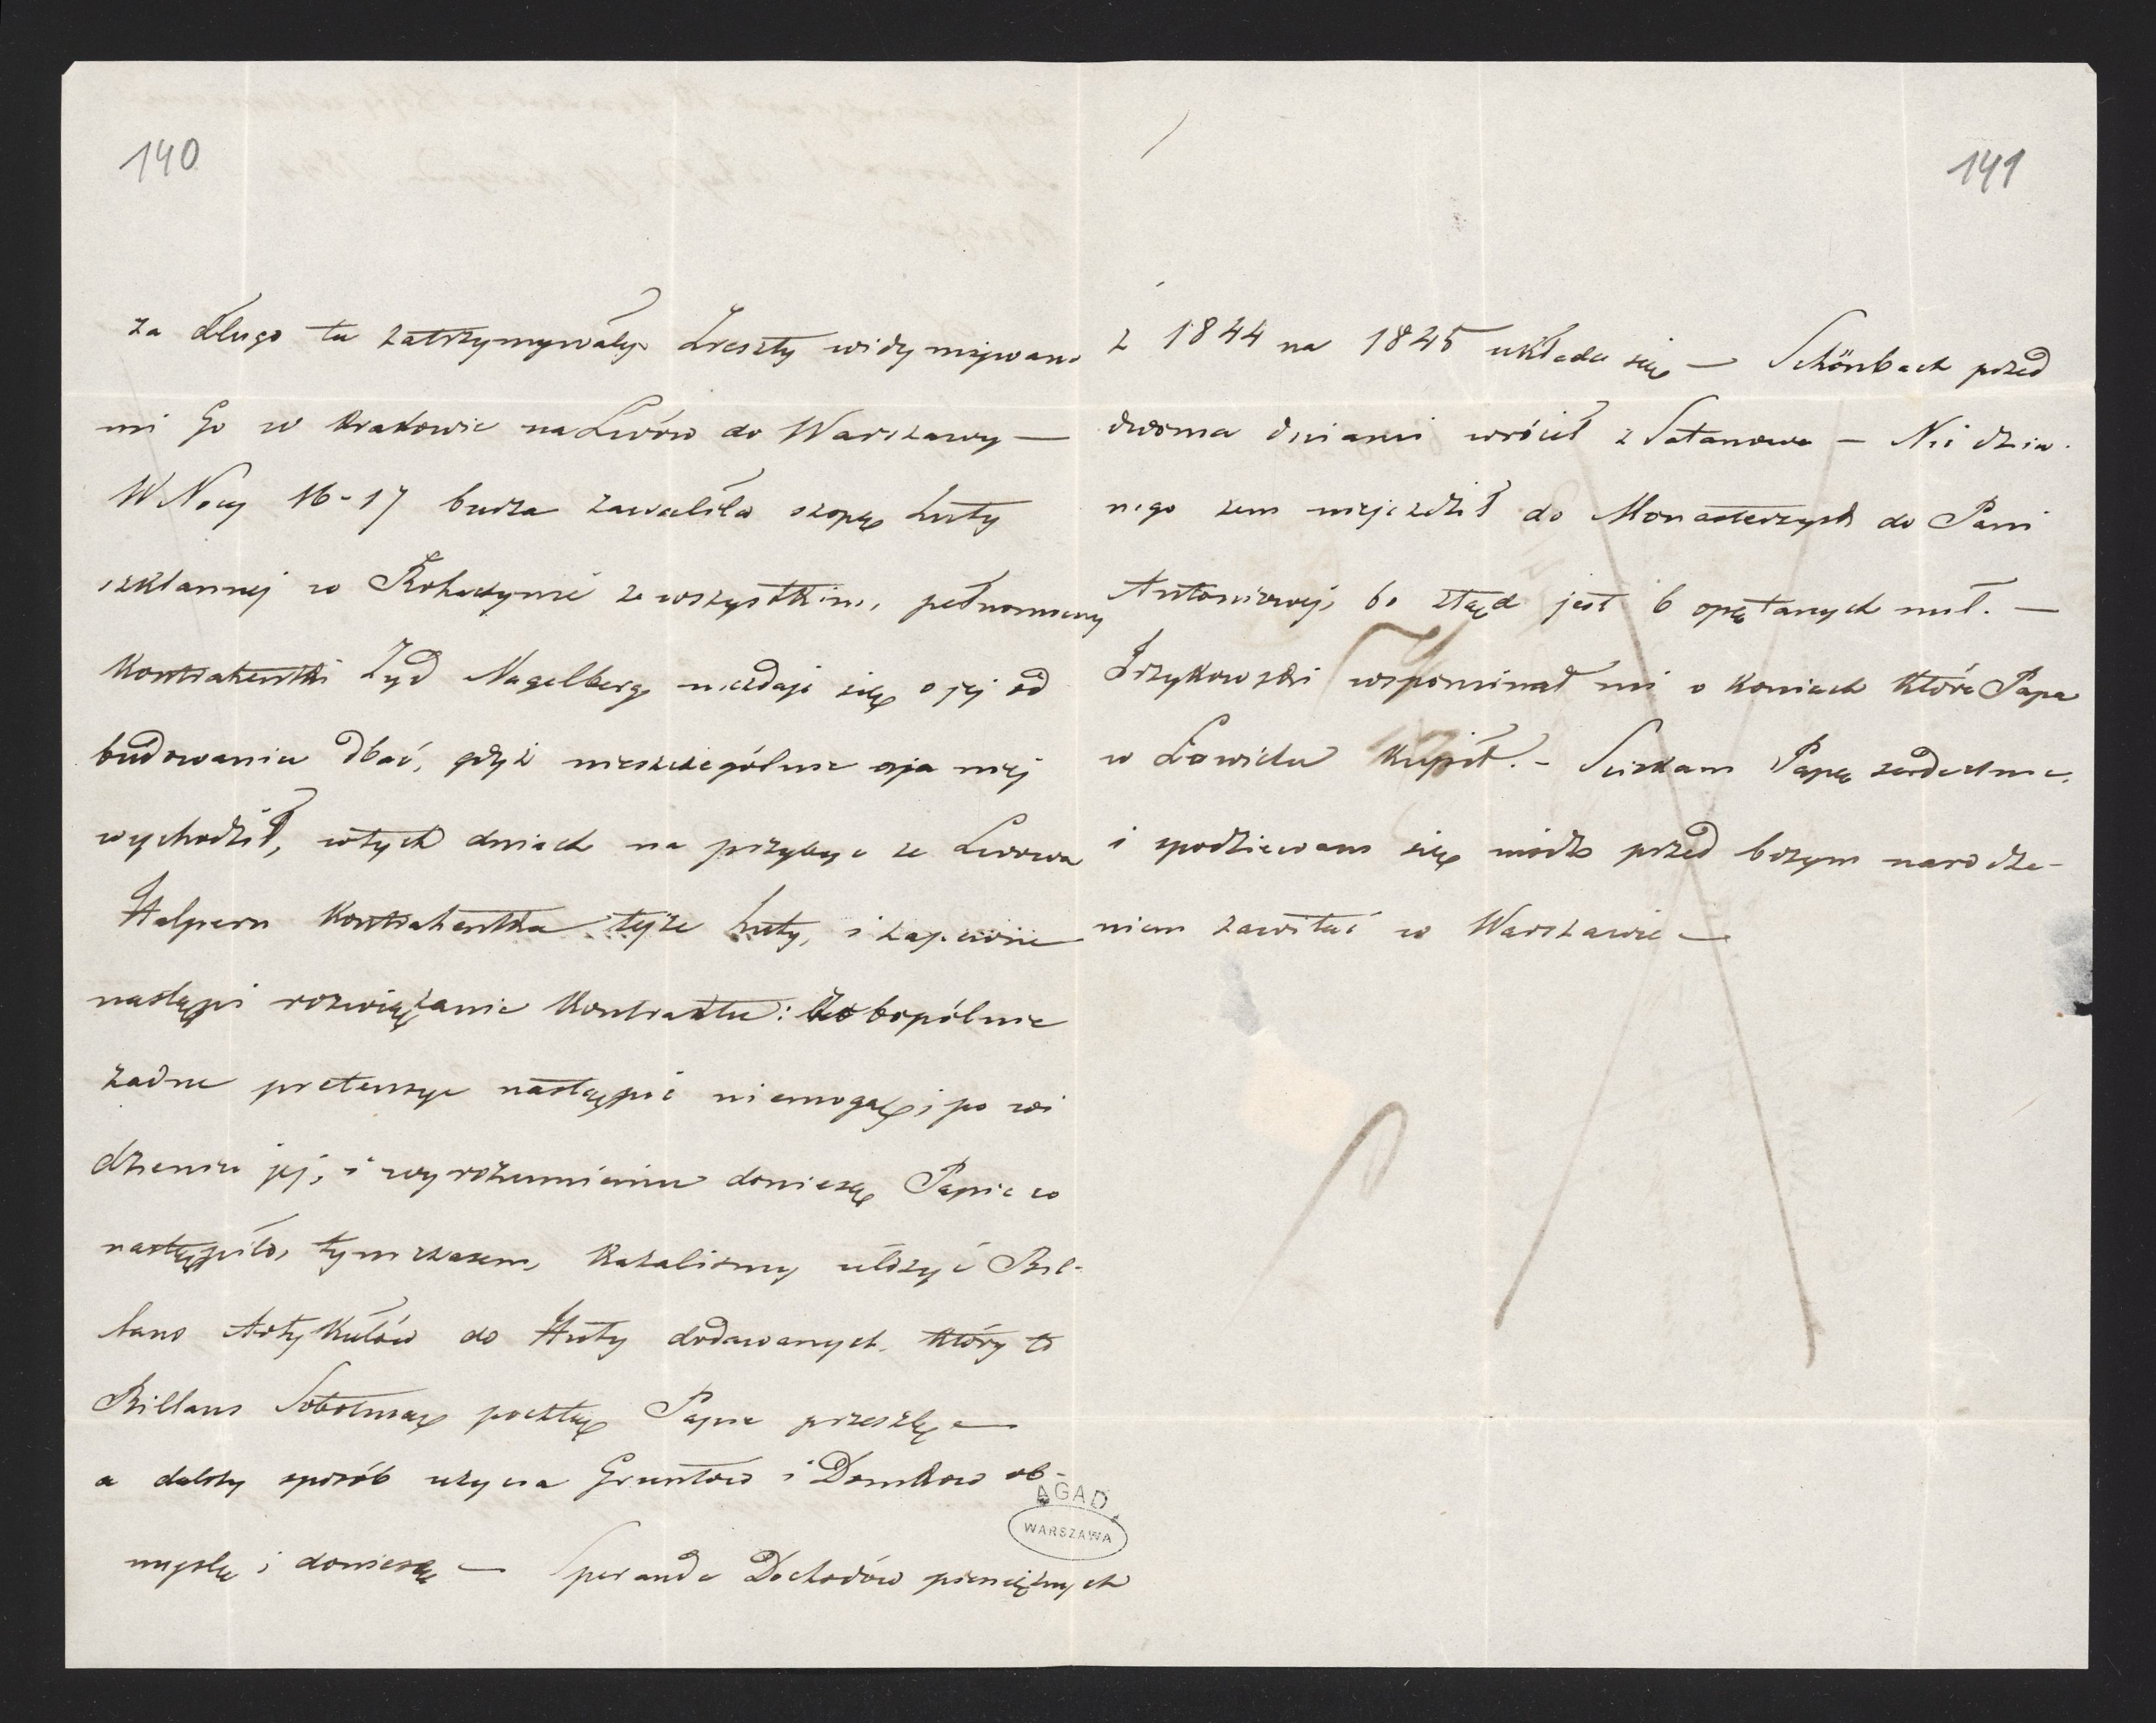 140
za długo tu zatrzymywały. Zresztą widymijwano
mi Go w Krakowie na Lwów do Warszawy —
W Nocy 16-17 burza zawaliła szopę huty
szklannej w Rohatynie ze wszystkim, pełnomocny
Kontrahentki Żyd Nagelberg niezdaje się o jej od
budowaniu dbać, gdyż nieszczególnie na niej
wychodził, wtych dniach ma przybyć ze Lwowa
Halpern Kontrahentka tejże huty, i zapewnie
nastąpi rozwiązanie Kontraktu: Zobopólnie
żadne pretensye nastąpić niemogą, i po wi
dzeniu jej, i wyrozumieniu doniesę Papie co
nastąpiło, tymczasem, kazaliśmy ułożyć Bil-
lans Artykułów do Huty dodawanych, który to
Billans Sobotniąę pocztą Papie prześlę —
a dalszy sposób użycia Gruntów i Domków ob-
myślę i doniesę — Speranda Dochodów pieniężnych
AGAD
WARSZAWA
141
z 1844 na 1845 układa się — Schönbach przed
dwoma dniami wrócił z Satanowa — Nic dziw.
nego żem niejeździł do Monasterzysk do Pani
Antoniowej, bo ztąd jest 6 opętanych mil. —
Irzykowski wspominał mi o koniach które Papa
w Łowiczu kupił. — Ściskam Papę serdecznie.
i spodziewam się może przed bożym narodze-
niem zawitać w Warszawie —